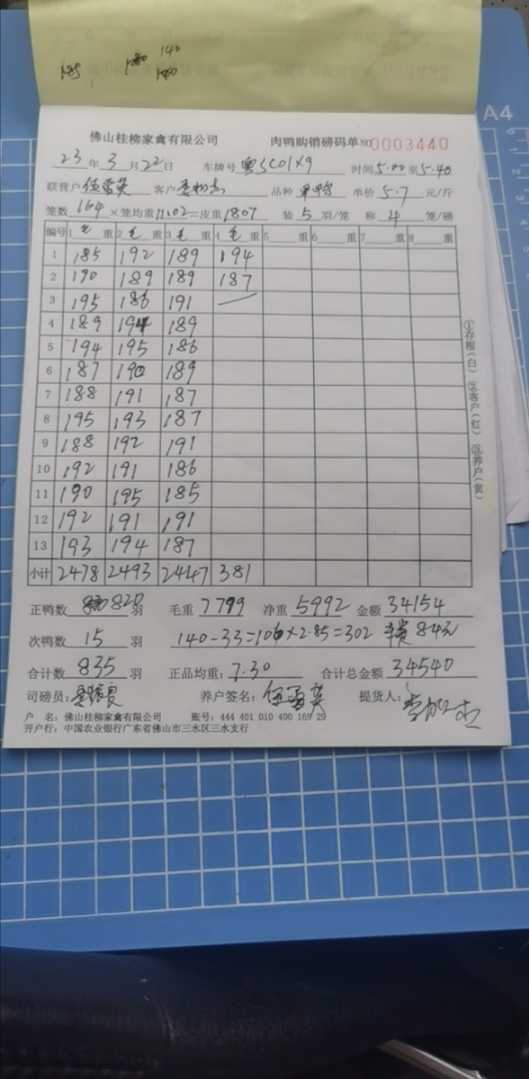 185 140
180
佛山桂柳家禽有限公司 肉鸭购销磅码单 NO 0003440
23年3月22日 车牌号 粤SC01X9 时间5.00至5.40
联营户 客户 品种 单价 5.7 元/斤
笼数 164 × 笼均重 11.02 = 皮重 1807 装 5 羽/笼 称 4 笼/磅
编号 1 毛 重 2 毛 重 3 毛 重 4 毛 重 5 重 6 重 7 重 8 重
1 185 192 189 194
2 190 189 189 187
3 195 186 191
4 189 194 189
5 194 195 186
6 187 190 189
7 188 191 187
8 195 193 187
9 188 192 191
10 192 191 186
11 190 195 185
12 192 191 191
13 193 194 187
小计 2478 2493 2447 381
①存根(白) ②客户(红) ③养户(黄)
正鸭数 820 羽 毛重 7799 净重 5992 金额 34154
次鸭数 15 羽 140-33=106×2.85=302 84元
合计数 835 羽 正品均重: 7.30 合计总金额 34540
司磅员: 养户签名: 提货人:
户 名: 佛山桂柳家禽有限公司 账号: 444 401 010 400 169 29
开户行: 中国农业银行广东省佛山市三水区三水支行
A4